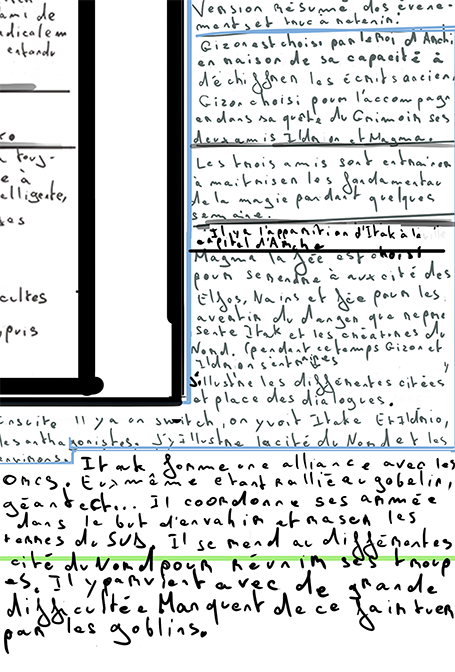 ami de
ndicalem
entandu
tous-
e à
elligente,
ses
cultes
puis
Version Résumé des événe-
ments et truc à retenir.
Gizon est choisi par le Roi d'Anchi
en raison de sa capacité à
déchiffrer les écrits ancien,
Gizon choisi pour l'accompagn
er dans sa quête du Grimoir ses
deux amis Ildrion et Magma.
Les trois amis sont entrainer
à maitriser les fondamentau
de la magie pandant quelques
semaine.
Il y a l'apparition d'Itak à le
capital d'Anche
Magma la fée est choisi
pour se rendre à aux cité des
Elfes, Nains et fée pour les
avertir du danger que repre
sente Itak et les créatures du
Nord. (pendant ce temps Gizon et
Ildrion s'entraines
J'illustre les différentes citées
et place des dialogues.
Ensuite Il y a un switch, on y voit Itake
les anthagonistes. J'y illustre la cité du Nord et les
environs.
Itak forme une alliance avec les
orcs. Eux même etant rallié au gobelin,
géant ect... Il coordonne ses armée
dans le but d'envahir et raser les
terres du SUD. Il se rend au différentes
cité du Nord pour réunir ses troup
es. Il y parvient avec de grande
difficultée Manquent de ce fair tuer
par les goblins.